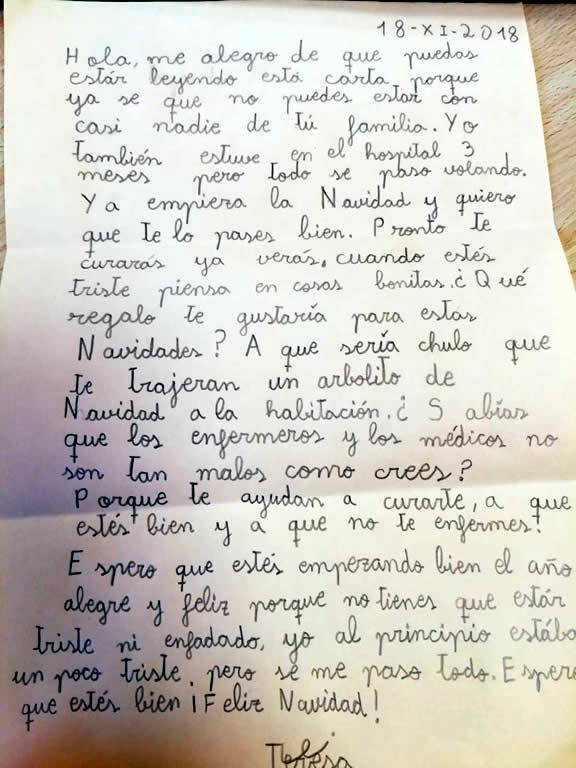 18-XI-2018
Hola, me alegro de que puedas
estár leyendo está carta porque
ya se que no puedes estar con
casi nadie de tú familia. Yo
también estuve en el hospital 3
meses pero todo se paso volando.
Ya empieza la Navidad y quiero
que te lo pases bien. Pronto te
curarás ya verás, cuando estés
triste piensa en cosas bonitas. ¿Qué
regalo te gustaría para estas
Navidades? A que sería chulo que
te trajeran un arbolito de
Navidad a la habitación. ¿Sabías
que los enfermeros y los médicos no
son tan malos como crees?
Porque te ayudan a curarte, a que
estés bien y a que no te enfermes.
Espero que estés empezando bien el año
alegre y feliz porque no tienes que estár
triste ni enfadado, yo al principio estába
un poco triste, pero se me paso todo. Espero
que estés bien ¡Feliz Navidad!
Teresa